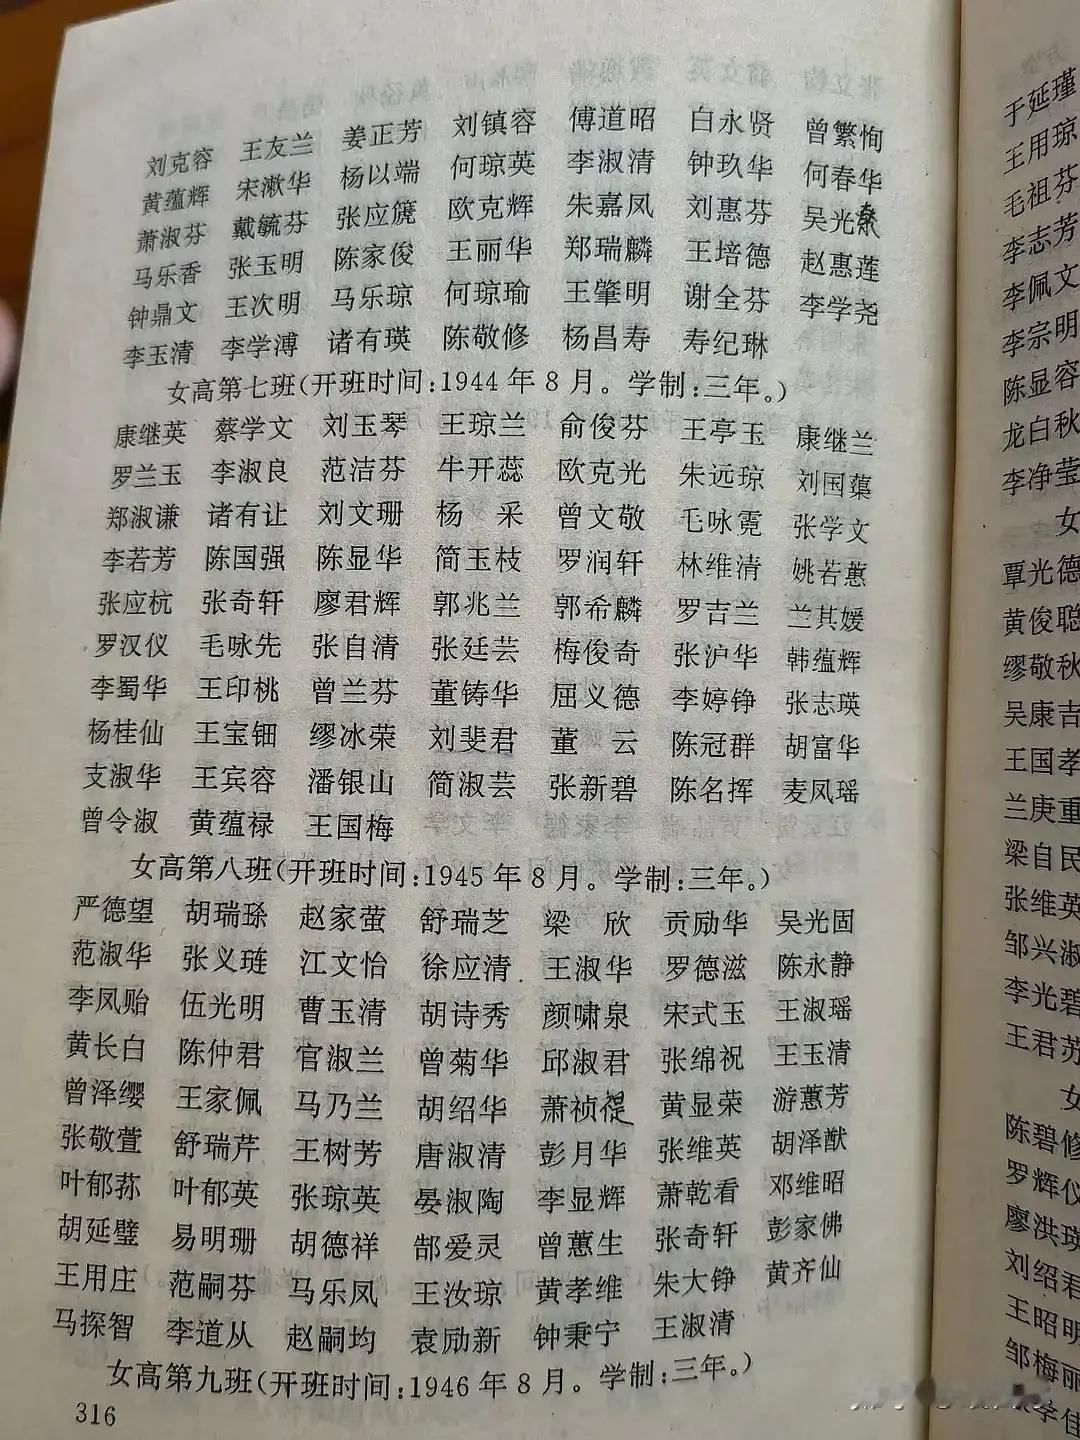 刘克容 王友兰 姜正芳 刘镇容 傅道昭 白永贤 曾繁恂
黄蕴辉 宋漱华 杨以端 何琼英 李淑清 钟玖华 何春华
萧淑芬 戴毓芬 张应篪 欧克辉 朱嘉凤 刘惠芬 吴光
马乐香 张玉明 陈家俊 王丽华 郑瑞麟 王培德 赵惠莲
钟鼎文 王次明 马乐琼 何琼瑜 王肇明 谢全芬 李学尧
李玉清 李学溥 诸有瑛 陈敬修 杨昌寿 寿纪琳
女高第七班(开班时间:1944年8月。学制:三年。)
康继英 蔡学文 刘玉琴 王琼兰 俞俊芬 王亭玉 康继兰
罗兰玉 李淑良 范洁芬 牛开蕊 欧克光 朱远琼 刘国蕖
郑淑谦 诸有让 刘文珊 杨 采 曾文敬 毛咏霓 张学文
李若芳 陈国强 陈显华 简玉枝 罗润轩 林维清 姚若蕙
张应杭 张奇轩 廖君辉 郭兆兰 郭希麟 罗吉兰 兰其媛
罗汉仪 毛咏先 张自清 张廷芸 梅俊奇 张沪华 韩蕴辉
李蜀华 王印桃 曾兰芬 董铸华 屈义德 李婷铮 张志瑛
杨桂仙 王宝钿 缪冰荣 刘斐君 董 云 陈冠群 胡富华
支淑华 王宾容 潘银山 简淑芸 张新碧 陈名挥 麦凤瑶
曾令淑 黄蕴禄 王国梅
女高第八班(开班时间:1945年8月。学制:三年。)
严德望 胡瑞琭 赵家萤 舒瑞芝 梁 欣 贡励华 吴光固
范淑华 张义琏 江文怡 徐应清 王淑华 罗德滋 陈永静
李凤贻 伍光明 曹玉清 胡诗秀 颜啸泉 宋式玉 王淑瑶
黄长白 陈仲君 官淑兰 曾菊华 邱淑君 张绵祝 王玉清
曾泽缨 王家佩 马乃兰 胡绍华 萧祯禔 黄显荣 游蕙芳
张敬萱 舒瑞芹 王树芳 唐淑清 彭月华 张维英 胡泽猷
叶郁荪 叶郁英 张琼英 晏淑陶 李显辉 萧乾看 邓维昭
胡延璧 易明珊 胡德祥 郜爱灵 曾蕙生 张奇轩 彭家佛
王用庄 范嗣芬 马乐凤 王汝琼 黄孝维 朱大铮 黄齐仙
马探智 李道从 赵嗣均 袁励新 钟秉宁 王淑清
女高第九班(开班时间:1946年8月。学制:三年。)
316
于延瑾
王用琼
毛祖芬
李志芳
李佩文
李宗明
陈显容
龙白秋
李净莹
女
覃光德
黄俊聪
缪敬秋
吴康吉
王国孝
兰庚重
梁自民
张维英
邹兴淑
李光碧
王君苏
女
陈碧修
罗辉仪
廖洪瑛
刘绍君
王昭明
邹梅丽
李佳